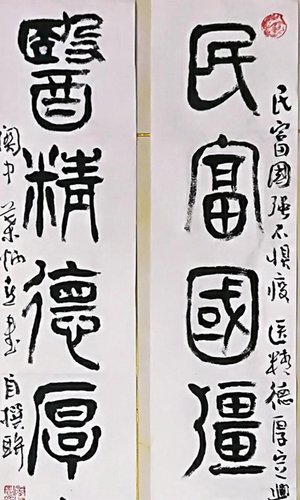 民富國彊
民富國强不惧疫 医精德厚定興
醫精德厚
阆中 葉炳 書 自撰聯